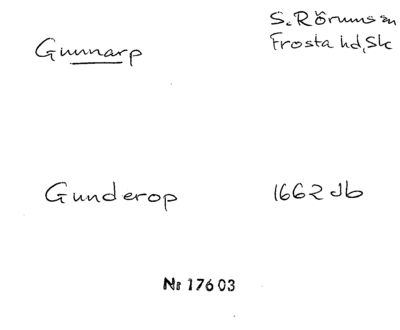 Gunnarp
S. Rörums sn
Frosta hd, Sk
Gunderop
1662 Jb
Nr 17603